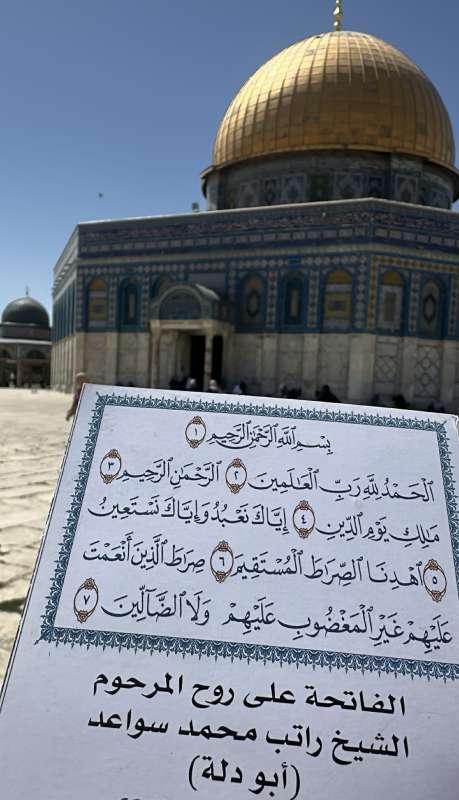 بِسْمِ اللَّهِ الرَّحْمَٰنِ الرَّحِيمِ ١
الْحَمْدُ لِلَّهِ رَبِّ الْعَالَمِينَ ٢ الرَّحْمَٰنِ الرَّحِيمِ ٣
مَالِكِ يَوْمِ الدِّينِ ٤ إِيَّاكَ نَعْبُدُ وَإِيَّاكَ نَسْتَعِينُ
٥ اهْدِنَا الصِّرَاطَ الْمُسْتَقِيمَ ٦ صِرَاطَ الَّذِينَ أَنْعَمْتَ
عَلَيْهِمْ غَيْرِ الْمَغْضُوبِ عَلَيْهِمْ وَلَا الضَّالِّينَ ٧
الفاتحة على روح المرحوم
الشيخ راتب محمد سواعد
(أبو دلة)